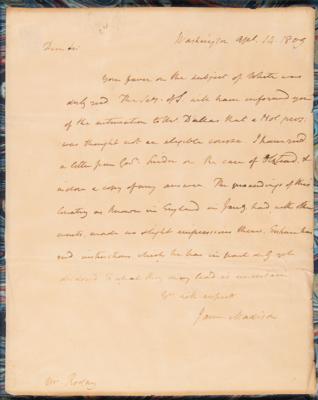 Washington Apl. 14. 1809
Dear Sir
Your favor on the subject of White was
duly recd. The Secy. of S. will have informed you
of the intimation to Mr Dallas that a Nol. pros.
was thought not an eligible course. I have recd
a letter from Govr. Snider on the case of Olmstead, &
inclose a copy of my answer. The proceedings of this
Country as known in England in Jany. had, with other
events, made no slight impressions there. Erskine has
recd instructions which he has in part only yet
disclosed. To what they may lead is uncertain
Yrs with respect
James Madison
Mr. Rodney